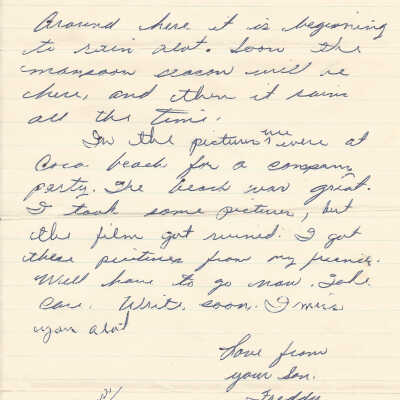 Around here it is beginning
to rain alot. Soon the
monsoon season will be
here, and then it rains
all the time.
In the pictures we were at
Coco beach for a company
party. The beach was great.
I took some pictures, but
the film got ruined. I got
these pictures from my friends.
Well have to go now. Take
Care. Write soon. I miss
you alot
Love from
your Son.
Freddy